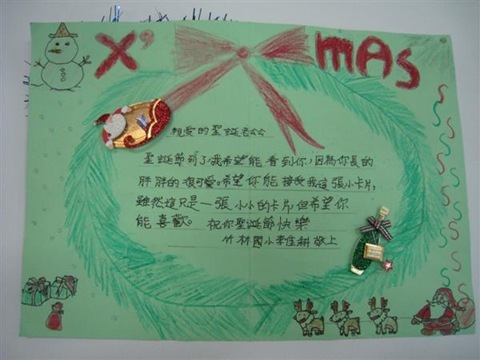 X' MAS
親愛的聖誕老公公
聖誕節到了,我希望能看到你,因為你長的
胖胖的很可愛。希望你能接受我這張小卡片,
雖然這只是一張小小的卡片,但希望你
能喜歡。祝你聖誕節快樂
竹林國小李佳耕敬上